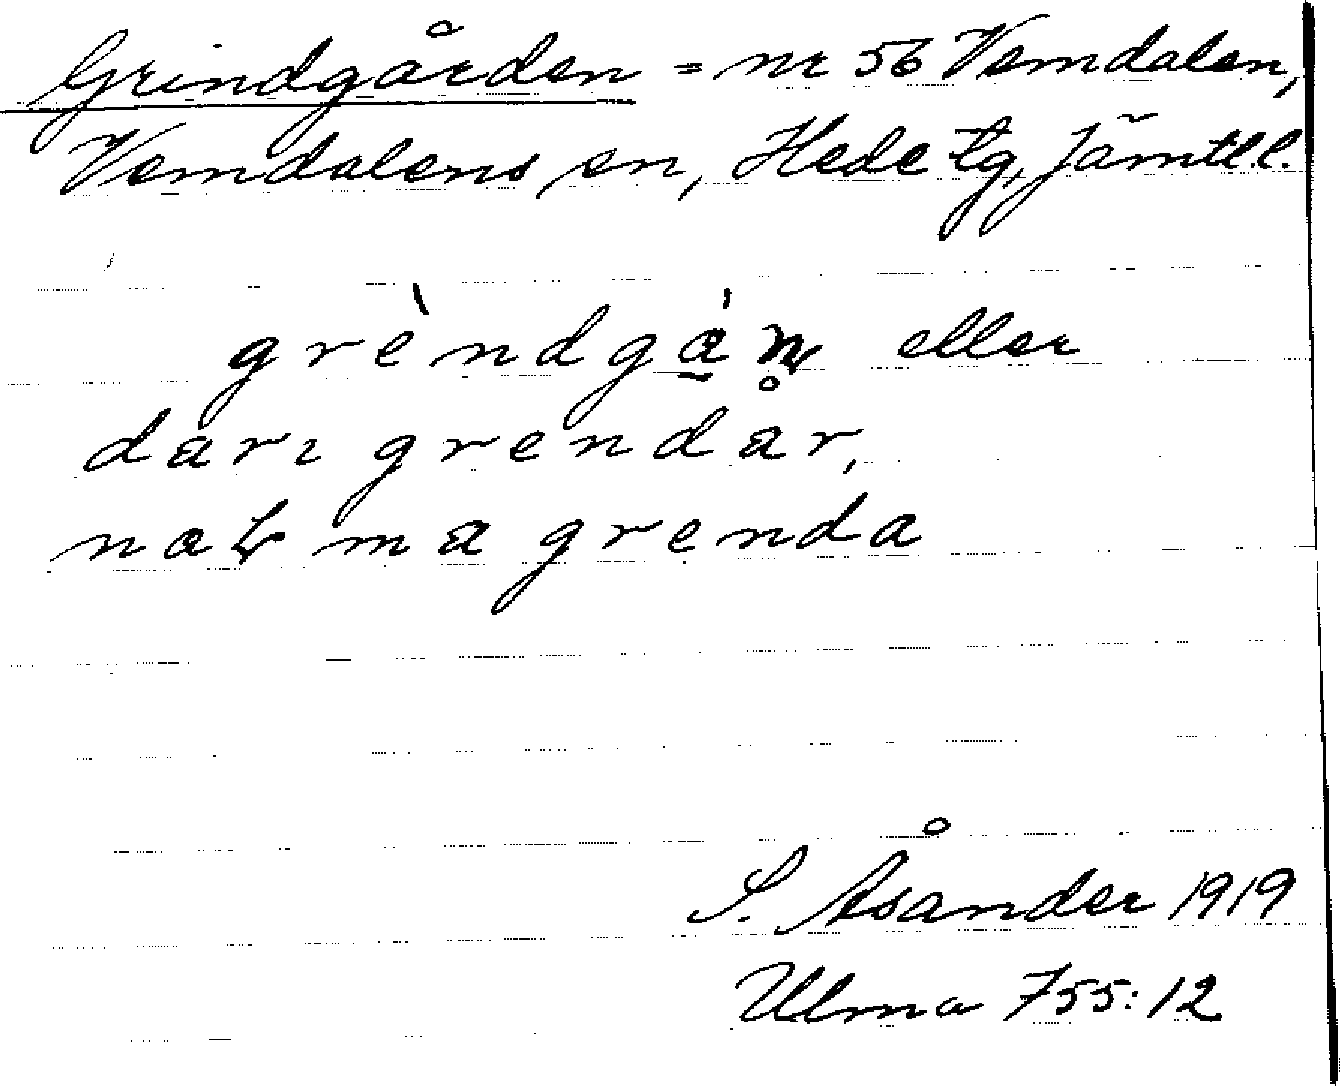 Grindgården = nr 56 Vemdalen,
Vemdalens sn, Hede tg, Jämtl l.
grèndgàṇ eller
darı grendår,
naɽ ma grenda
S. Åsander 1919
Ulma 755:12